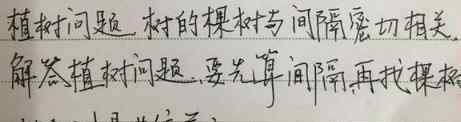 植树问题 树的棵树与间隔密切相关.
解答植树问题.要先算间隔,再找棵树